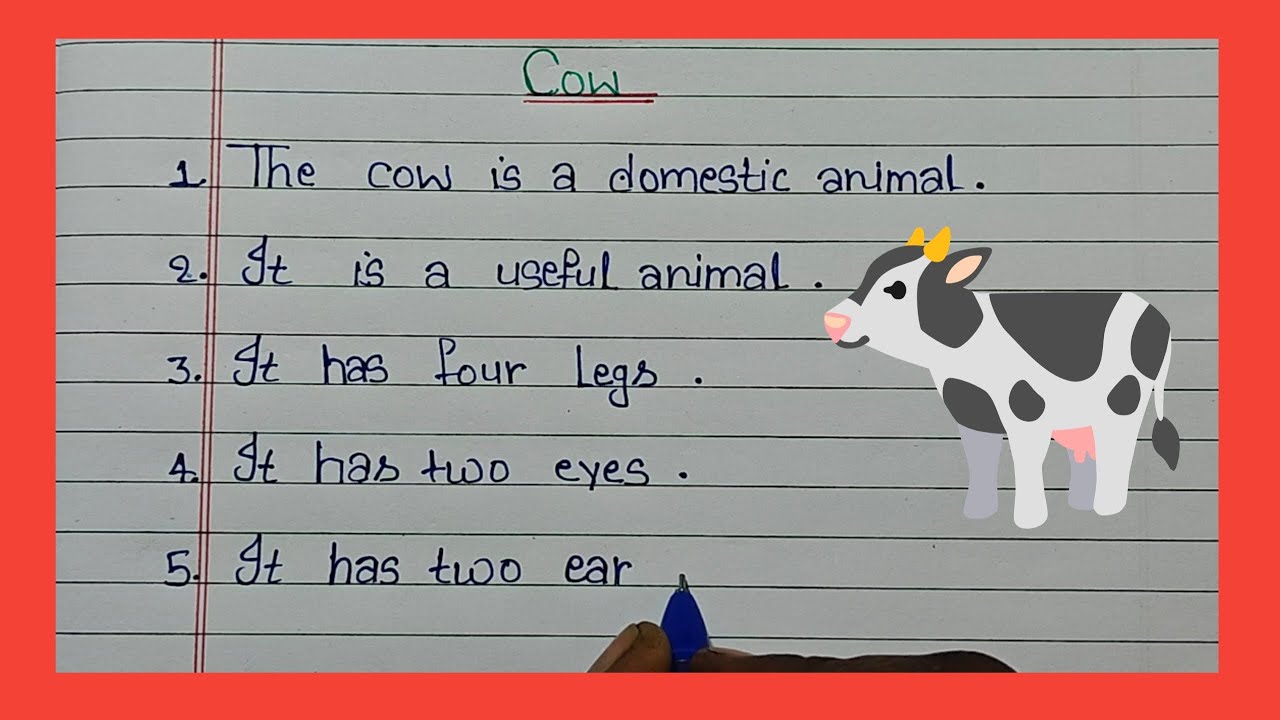 Cow
1. The cow is a domestic animal.
2. It is a useful animal.
3. It has four legs.
4. It has two eyes.
5. It has two ear